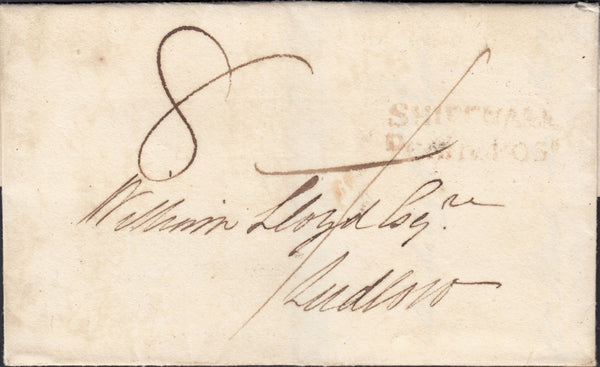 8
SHIFFNALL
Penny Post
William Lloyd Esqre
Ludlow